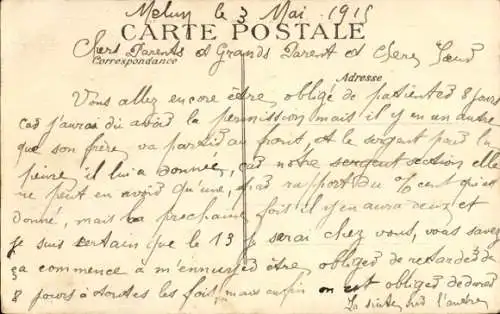 Melun le 3 Mai 1915
CARTE POSTALE
Chers Parents et Grands Parent et Chere Soeur
Correspondance
Adresse
Vous allez encore être obligé de patienter 8 jours
car j'aurai du avoir la permission mais il y en un autre
que son frère va partir au front, et le sergant pour la
il lui a donnée, car notre sergent section elle
ne peut en avoir qu'une, par rapport du % cent qui est
donné, mais la prochaine fois il y en aura deux et
je suis certain que le 13 je serai chez vous, vous savez
ça commence a m'ennuyer être obliged de retarder de
8 jours à toutes les fois, mais enfin on est obliged
La suite sur l'autre